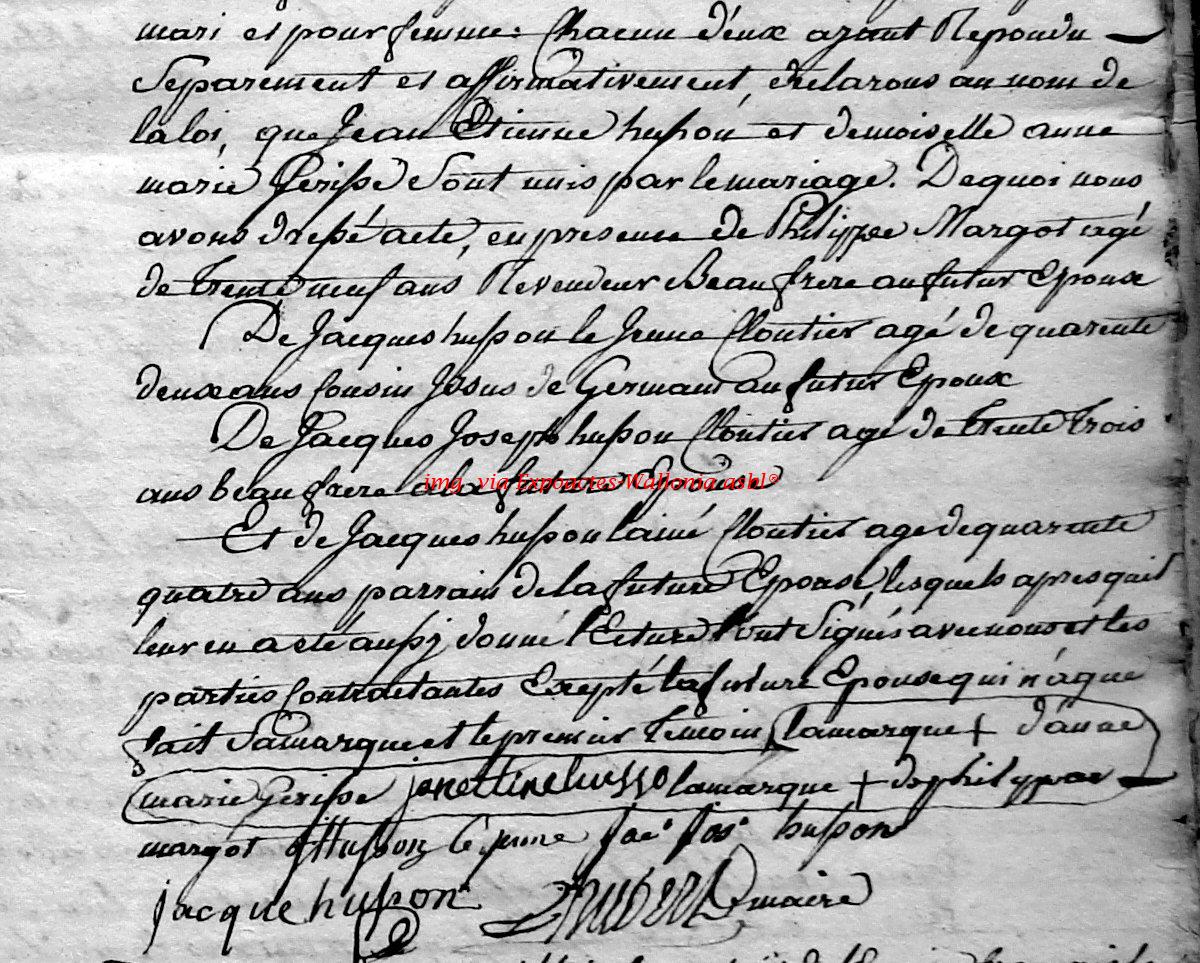 mari et pour femme: Chacun d'éux ayant Repondu
Separement et affirmativement, declarons au nom de
la loi, que Jean Etienne husson et demoiselle anne
marie Gerisse sont unis par le mariage. De quoi nous
avons dressé acte, en presence de Philippe Margot agé
de trente neuf ans Revendeur Beau frere au futur Epoux
De Jacques husson le Jeune Cloutier agé de quarente
deux ans Cousin Jssus de Germain au futur Epoux
De Jacques Joseph husson Cloutier age de trente trois
ans beau frere a la future Epouse
img. via Expoactes-Wallonia asbl®
Et de Jacques husson lainé Cloutier age de quarente
quatre ans parrain de la future Epouse, lesquels apres quil
leur en a eté aussj donné lEcture l'ont Signés avec nous et les
parties Contractantes Excepté la future Epouse qui n'a que
fait Sa marque et le premier temoin la marque + d'anne
marie Gerisse jan ettine husso la marque + de philyppe
margot JHusson le jeune Jac. Jos. husson
jacque husson Hubert maire